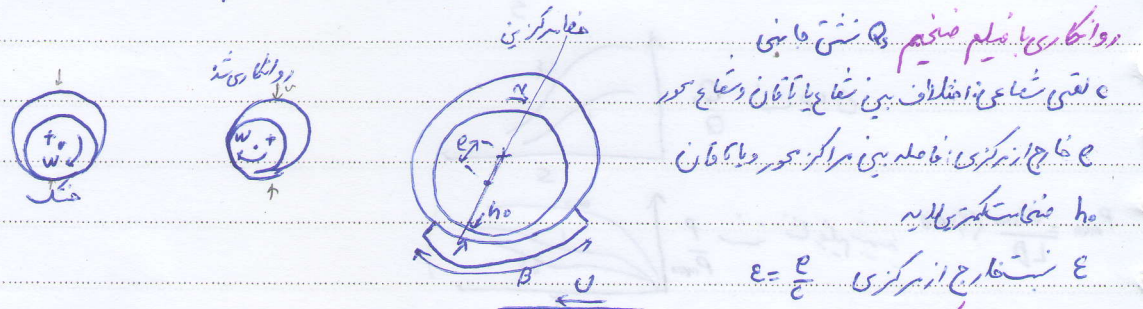 روانکاری با فیلم ضخیم Qs نشتی جانبی
c لقی شعاعی: اختلاف بین شعاع یاتاقان و شعاع محور
e خارج از مرکزی: فاصله بین مراکز محور و یاتاقان
h₀ ضخامت کمترین لایه
ε نسبت خارج از مرکزی ε = e/c
خط مرکزین
روانکاری شده
خشک
w
w
e
h₀
β
U